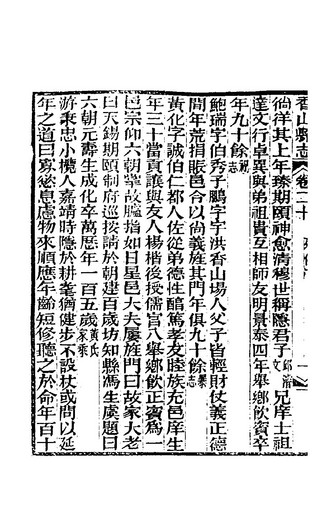 香山縣志 卷二十
徜徉其上年臻期頤神愈清穆世稱隱君子文 兄庠士祖
達文行卓異與弟祖貴互相師友明景泰四年舉鄉飲賓卒
年九十餘祝志
鮑瑞字伯秀子鵬字宇洪香山場人父子皆輕財仗義正德
間年荒捐賑邑令以尚義旌其門年俱九十餘暴志
黃化字誠伯仁都人佐從弟德性醇篤孝友睦族充邑庠生
年三十當貢讓與友人楊楷後授儒官八舉鄉飲正賓為一
邑宗仰六朝 故 指如日星邑大夫屢旌門曰故家大老
曰天錫期頤制府巡按請於朝建百歲坊知縣馮生虞題曰
六朝元壽生成化卒萬歷年一百五歲黃氏家乘
游秉忠小欖人嘉靖時隱於耕耄猶健步不設杖或問以延
年之道曰寡慾息慮物來順應年齡短修聽之於命年百十